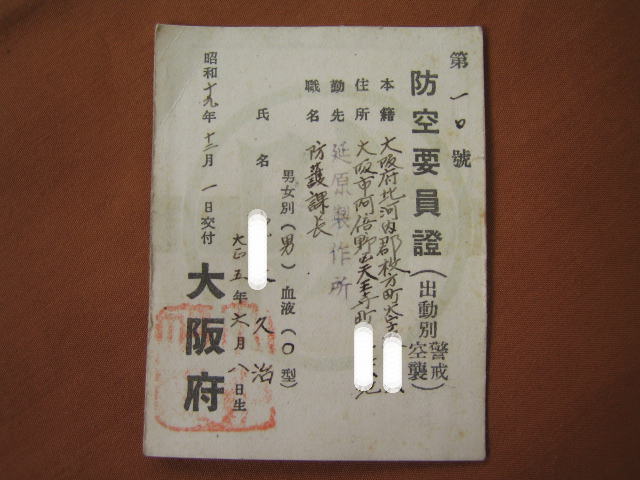 第一〇號
防空要員證(出動別 警戒 空襲)
本籍 大阪府北河内郡枚方町大字
住所 大阪市阿倍野区天王寺町
勤先 延原製作所
職名 防護課長
男女別(男)血液(O型)
氏名 久治
大正五年六月八日生
昭和十九年十二月一日交付
大阪府